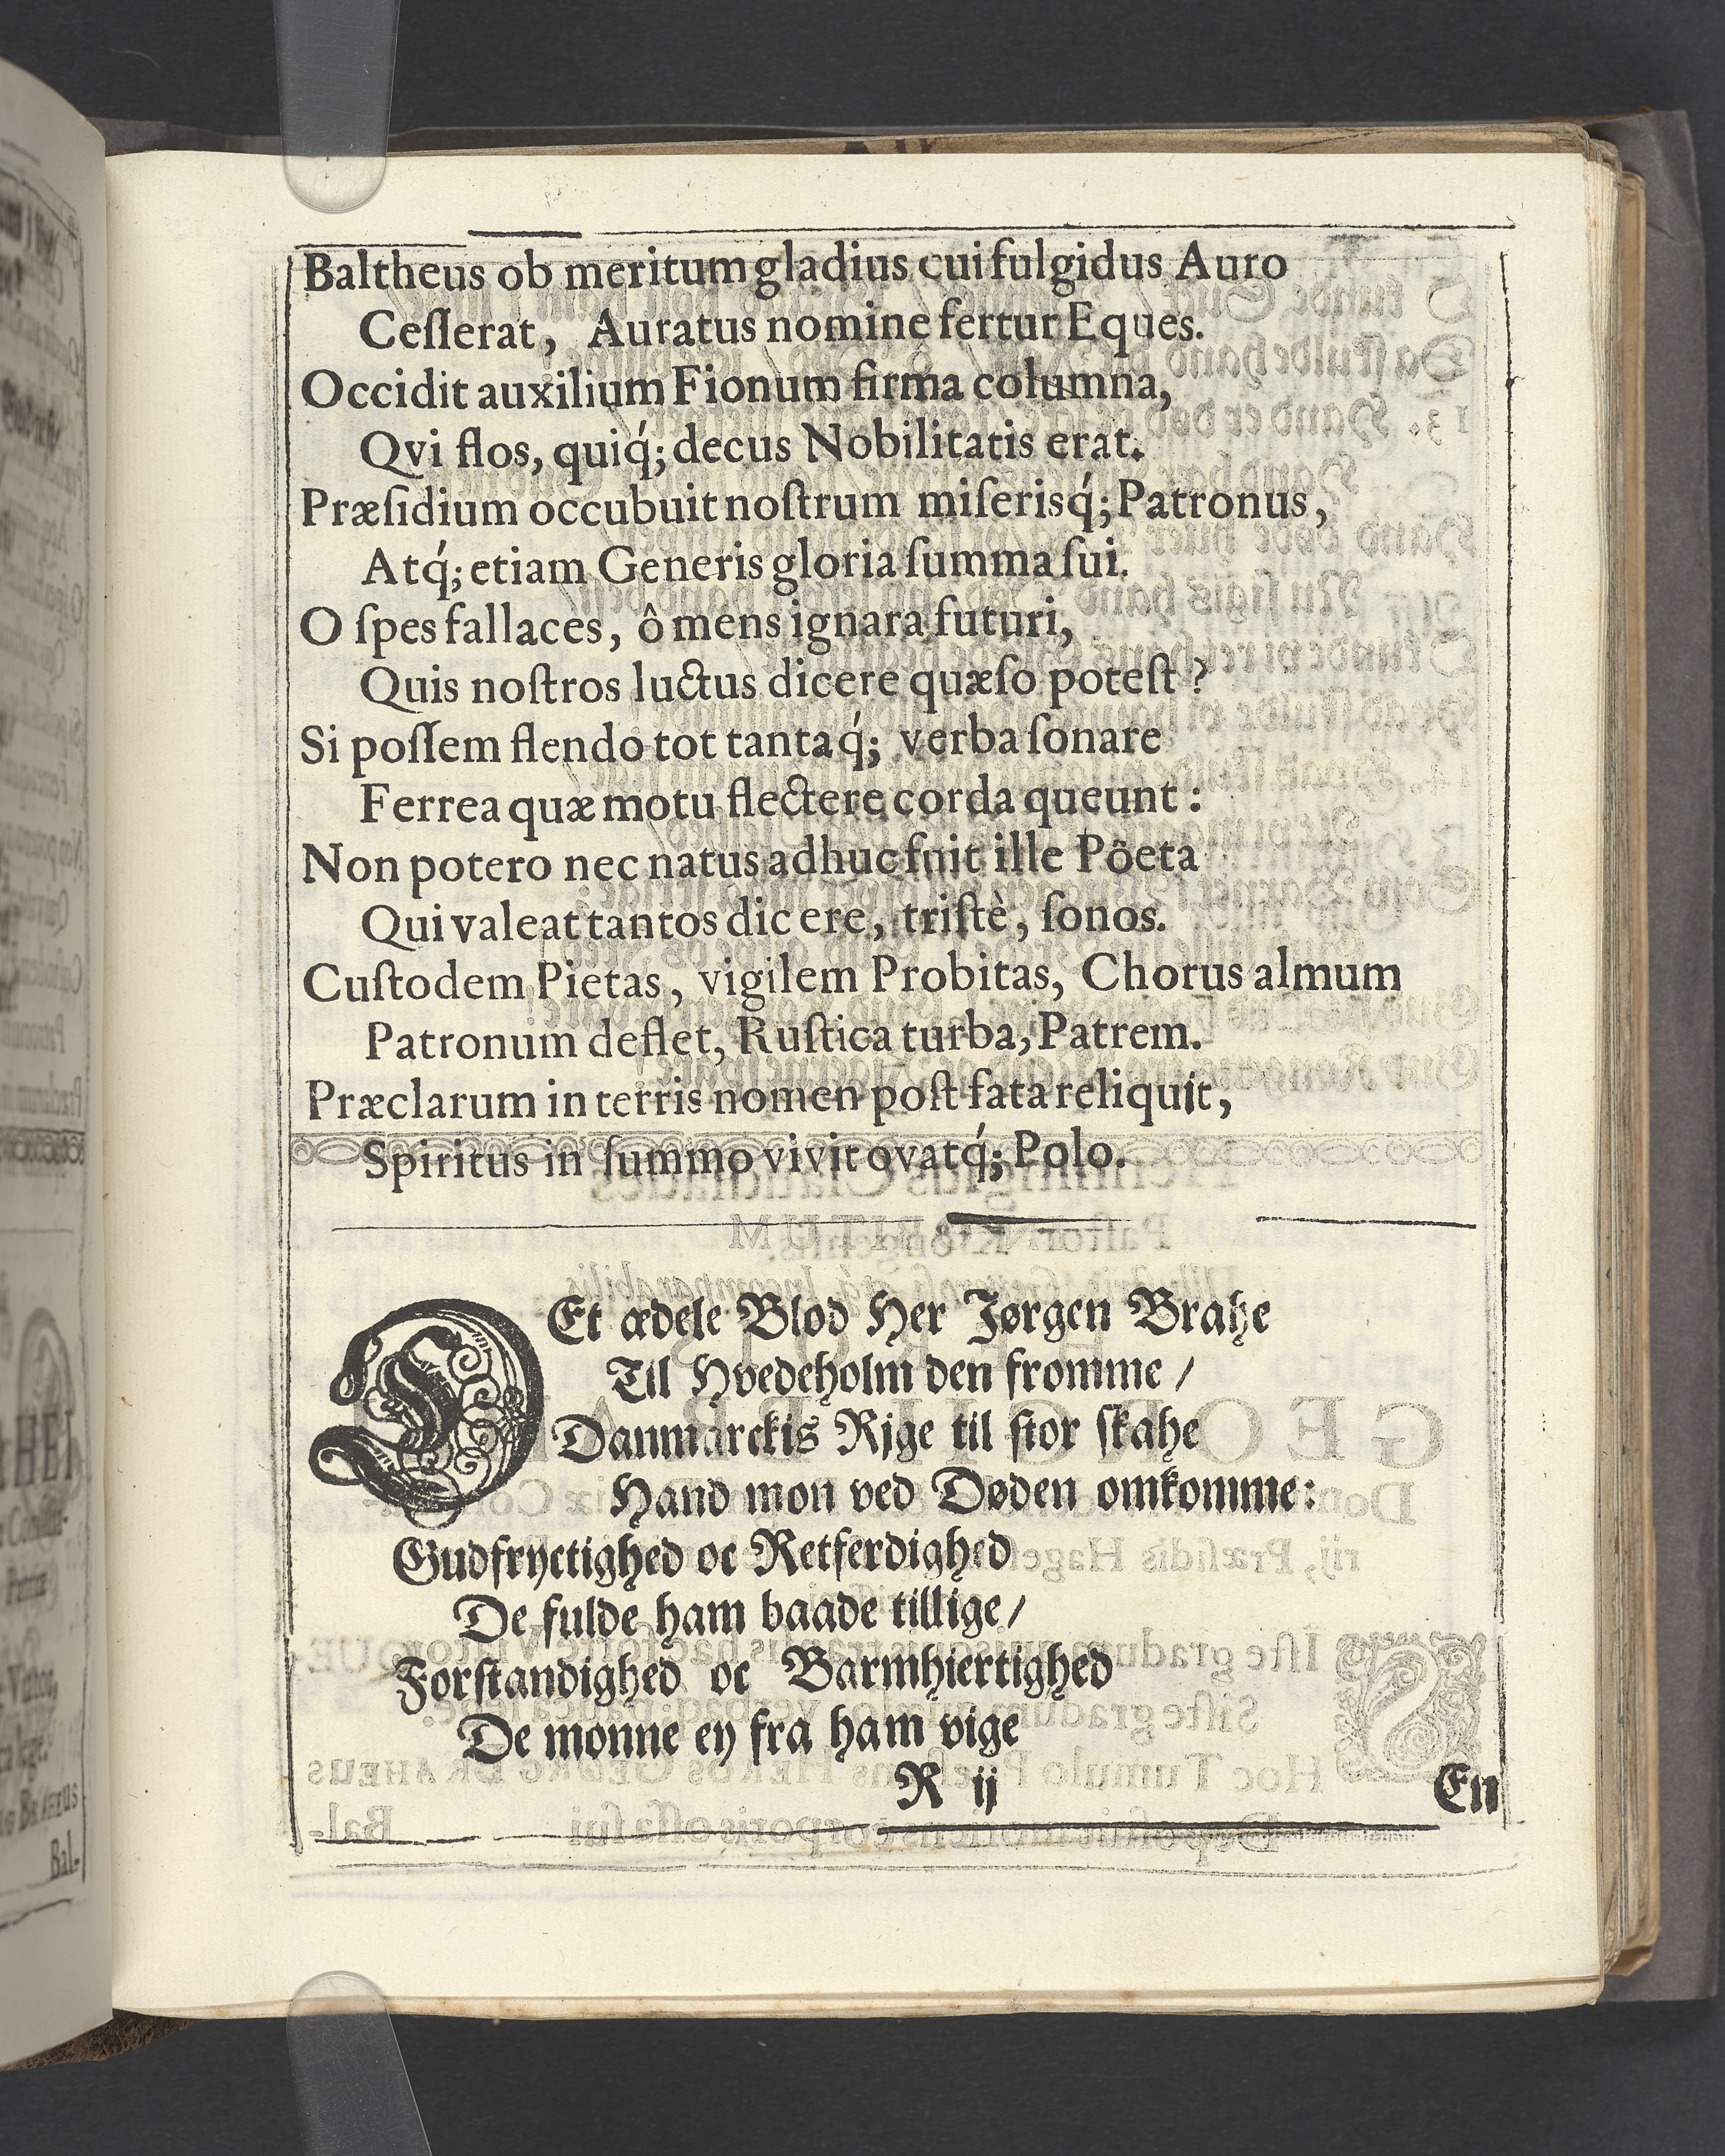 Baltheus ob meritum gladius cui fulgidus Auro
Ceſſerat, Auratus nomine fertur Eques.
Occidit auxilium Fionum firma columna,
Qvi flos, quiq́; decus Nobilitatis erat.
Præſidium occubuit noſtrum miſerisq́; Patronus,
Atq́; etiam Generis gloria ſumma ſui.
O ſpes fallaces, ô mens ignara futuri,
Quis noſtros luctus dicere quæſo poteſt?
Si poſſem flendo tot tantaq́; verba ſonare
Ferrea quæ motu flectere corda queunt:
Non potero nec natus adhuc fuit ille Pôeta
Qui valeat tantos dicere, triſtè, ſonos.
Cuſtodem Pietas, vigilem Probitas, Chorus almum
Patronum deflet, Ruſtica turba, Patrem.
Præclarum in terris nomen poſt fata reliquit,
Spiritus in ſummo vivit ovatq́; Polo.
DEt ædele Blod Her Jørgen Brahe
Til Hvedeholm den fromme /
Danmarckis Rjge til ſtor ſkahe
Hand mon ved Døden omkomme:
Gudfryctighed oc Retferdighed
De fulde ham baade tillige /
Forſtandighed oc Barmhiertighed
De monne ey fra ham vige
R ij
En